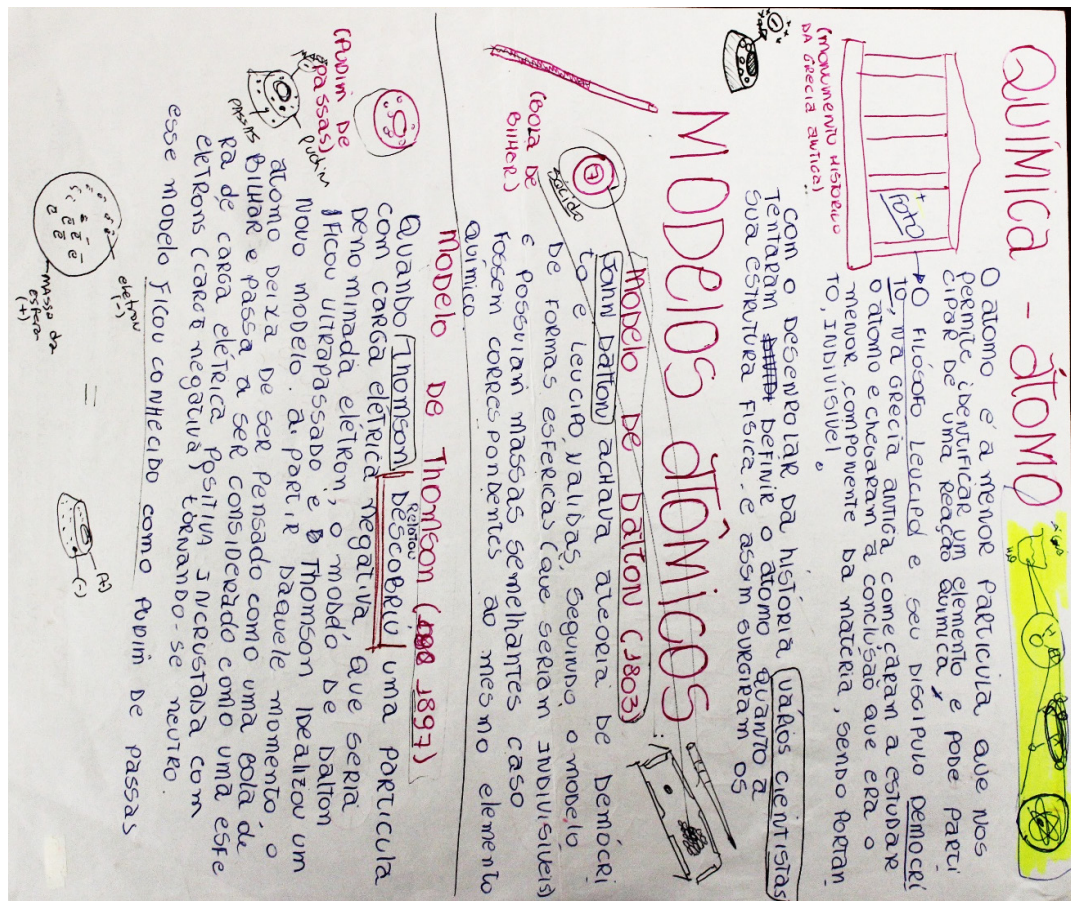 QUÍMICA - átomo
O átomo é a menor partícula que nos
permite identificar um elemento e pode parti
cipar de uma reação química,
O filósofo Leucipo e seu discipulo Democri
to, na Grecia antiga começaram a estudar
o átomo e chegaram à conclusão que era o
menor componente da matéria, sendo portan
to, indivisível.
Foto
(monumento historico
da Grecia antiga)
H₂O
Com o desenrolar da história vários cientistas
tentaram definir o átomo quanto a
sua estrutura fisica e assim surgiram os
MODELOS ATÔMICOS
modelo de Dalton (1803)
John Dalton achava a teoria de Demócri
to e Leucipo validas, segundo o modelo
de formas esfericas (que seriam indivisíveis)
e possuiam massas semelhantes caso
fossem correspondentes ao mesmo elemento
químico
7
sólido
(Bola de
Bilher)
modelo de Thomson (1897)
Quando Thomson relatou descobriu uma partícula
com carga elétrica negativa que seria
denominada elétron, o modelo de Dalton
ficou ultrapassado e Thomson idealizou um
novo modelo. a partir daquele momento o
átomo deixa de ser pensado como uma bola de
Bilhar e passa a ser considerado como uma esfe
ra de carga elétrica positiva incrustada com
elétrons (carga negativa) tornando-se neutro
esse modelo ficou conhecido como pudim de passas
(pudim de
passas)
passas
pudim
eletron
(-)
massa da
esfera
(+)
=
(+)
(-)